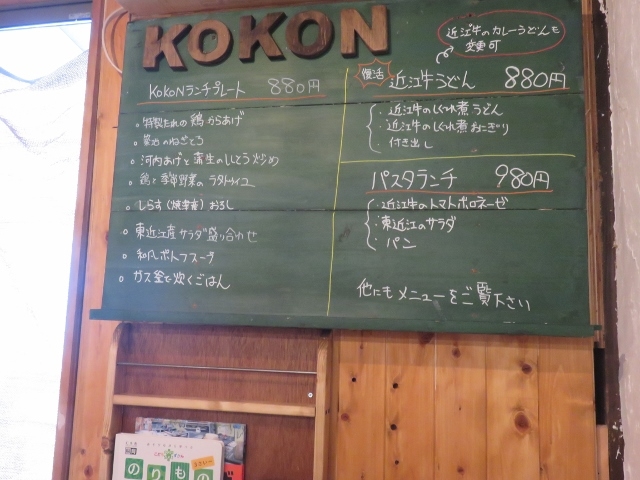 KOKON
KOKONランチプレート 880円
特製だれの鶏からあげ
のねぎとろ
河内あげと蒲生のししとう炒め
鶏と季節野菜のラタトゥイユ
しらす(焼津産)おろし
東近江産サラダ盛り合わせ
和風ポトフスープ
ガス釜で炊くごはん
近江牛のカレーうどんも
変更可
復活 近江牛うどん 880円
近江牛のしぐれ煮うどん
近江牛のしぐれ煮おにぎり
付き出し
パスタランチ 980円
近江牛のトマトボロネーゼ
東近江のサラダ
パン
他にもメニューをご覧下さい
のりもの